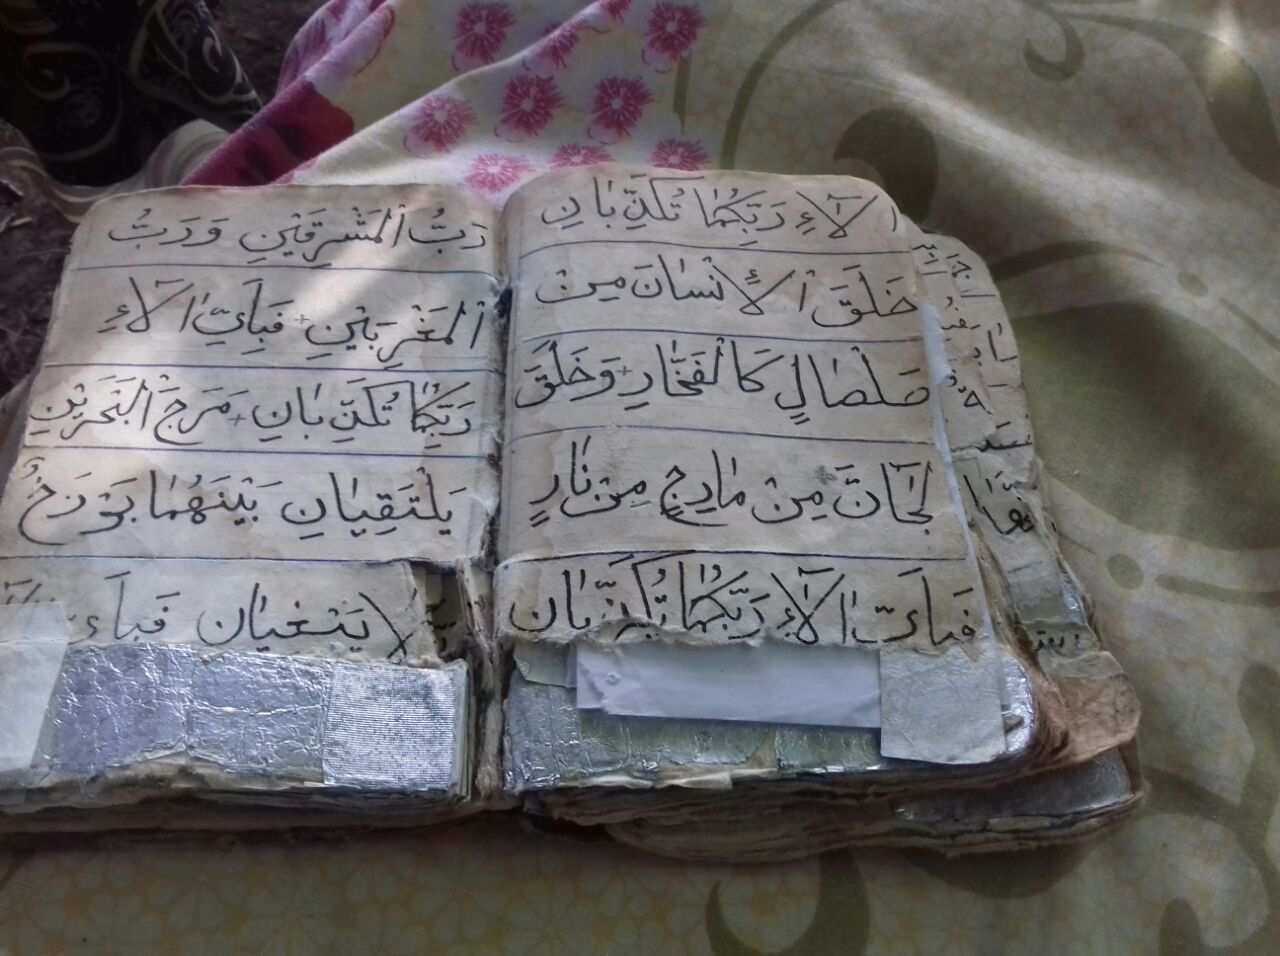 الَآءِ رَبِّكُمَا تُكَذِّبَانِ
خَلَقَ الْأِنْسَانَ مِنْ
صَلْصَالٍ كَالْفَخَّارِ + وَخَلَقَ
لْجَآنَّ مِنْ مَارِجٍ مِنْ نَارٍ
فَبِأَىِّ الَآءِ رَبِّكُمَا تُكَذِّبَانِ
رَبُّ الْمَشْرِقَيْنِ وَرَبُّ
الْمَغْرِبَيْنِ + فَبِأَىِّ الَآءِ
رَبِّكُمَا تُكَذِّبَانِ + مَرَجَ الْبَحْرَيْنِ
يَلْتَقِيَانِ بَيْنَهُمَا بَرْزَخٌ
لَا يَبْغِيَانِ فَبِأَىِّ